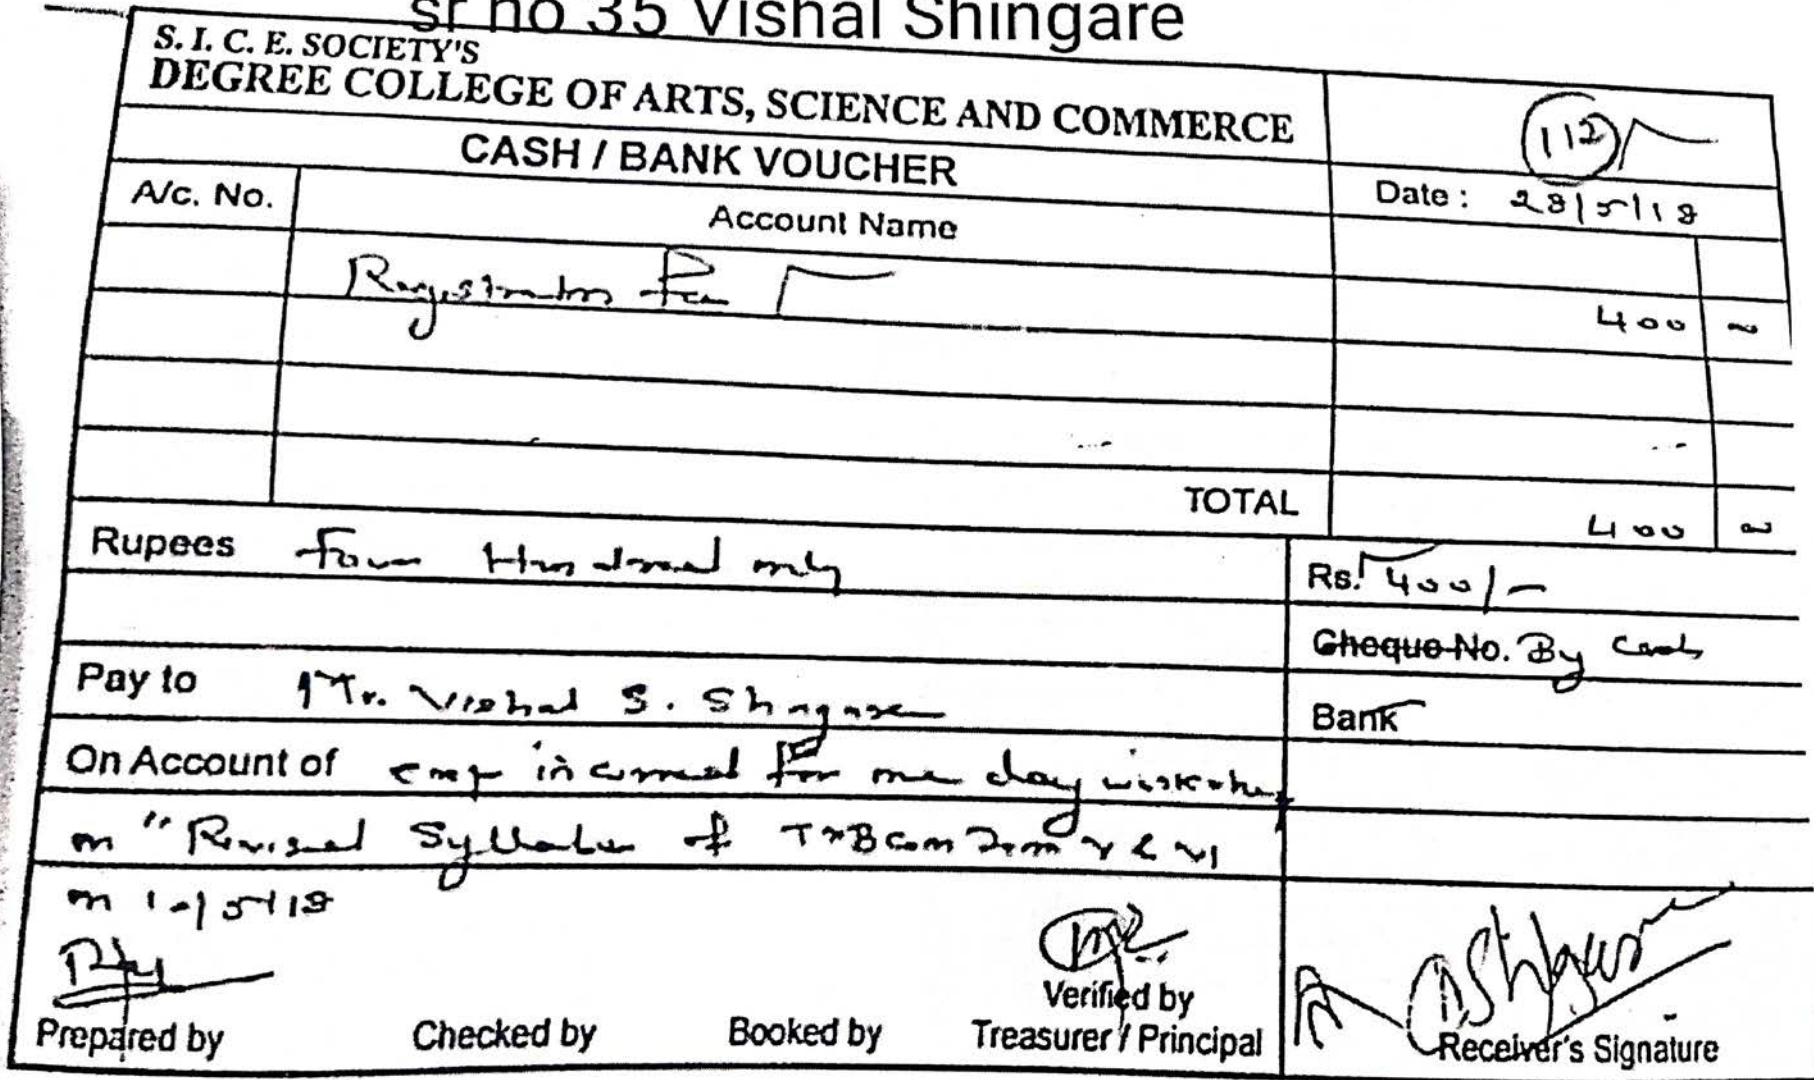 sr no 35 Vishal Shingare
S. I. C. E. SOCIETY'S
DEGREE COLLEGE OF ARTS, SCIENCE AND COMMERCE
112
CASH / BANK VOUCHER
Date : 28/5/18
A/c. No.
Account Name
Registration Fee
400
TOTAL
400
Rupees Four Hundred only
Rs. 400/-
Cheque No. By Cash
Pay to Mr. Vishal S. Shingare
Bank
On Account of exp incurred for one day workshop
on "Revised Syllabus of TYBCom Sem V & VI
on 10/5/18
Verified by
Prepared by Checked by Booked by Treasurer / Principal
Receiver's Signature